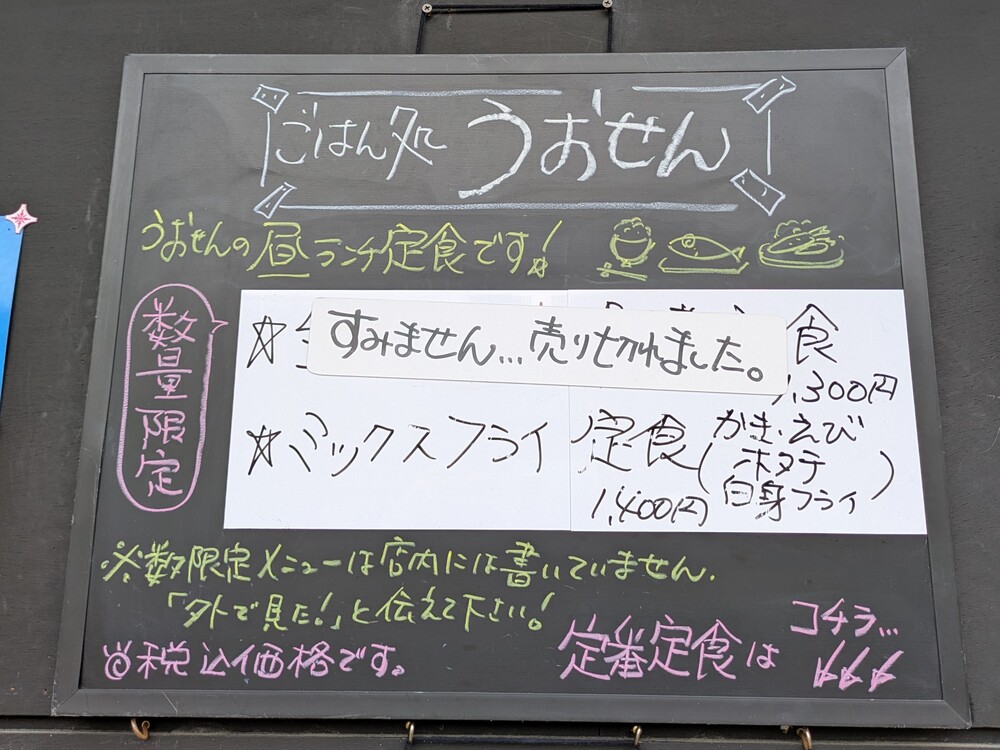 ごはん処 うおせん
うおせんの昼ランチ定食です!
数量限定
☆
すみません...売り切れました。
食
1,300円
☆ミックスフライ定食(かき・えび
ホタテ
白身フライ)
1,400円
※数限定メニューは店内には書いていません.
「外で見た!」と伝えて下さい!
税込価格です。
定番定食は
コチラ...